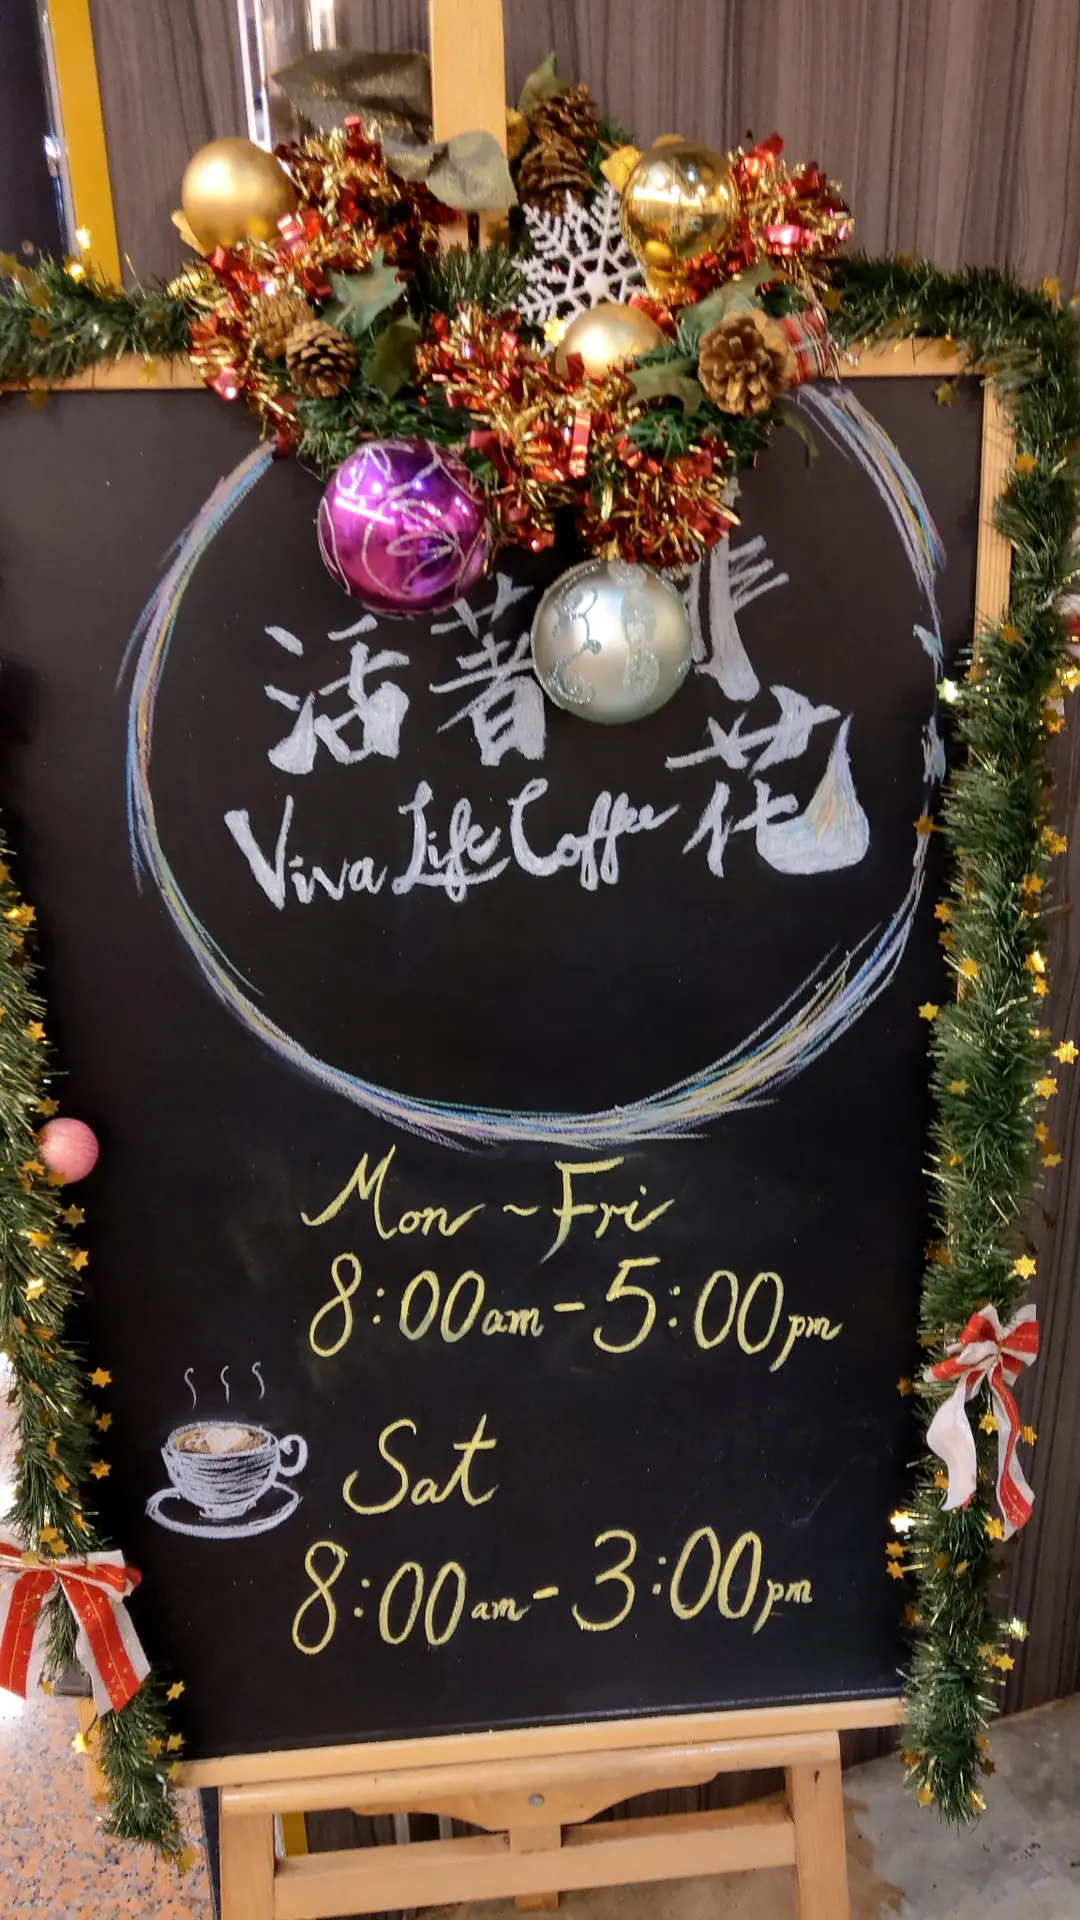 活著
花
Viva Life Coffee
Mon ~ Fri
8:00am - 5:00pm
Sat
8:00am - 3:00pm